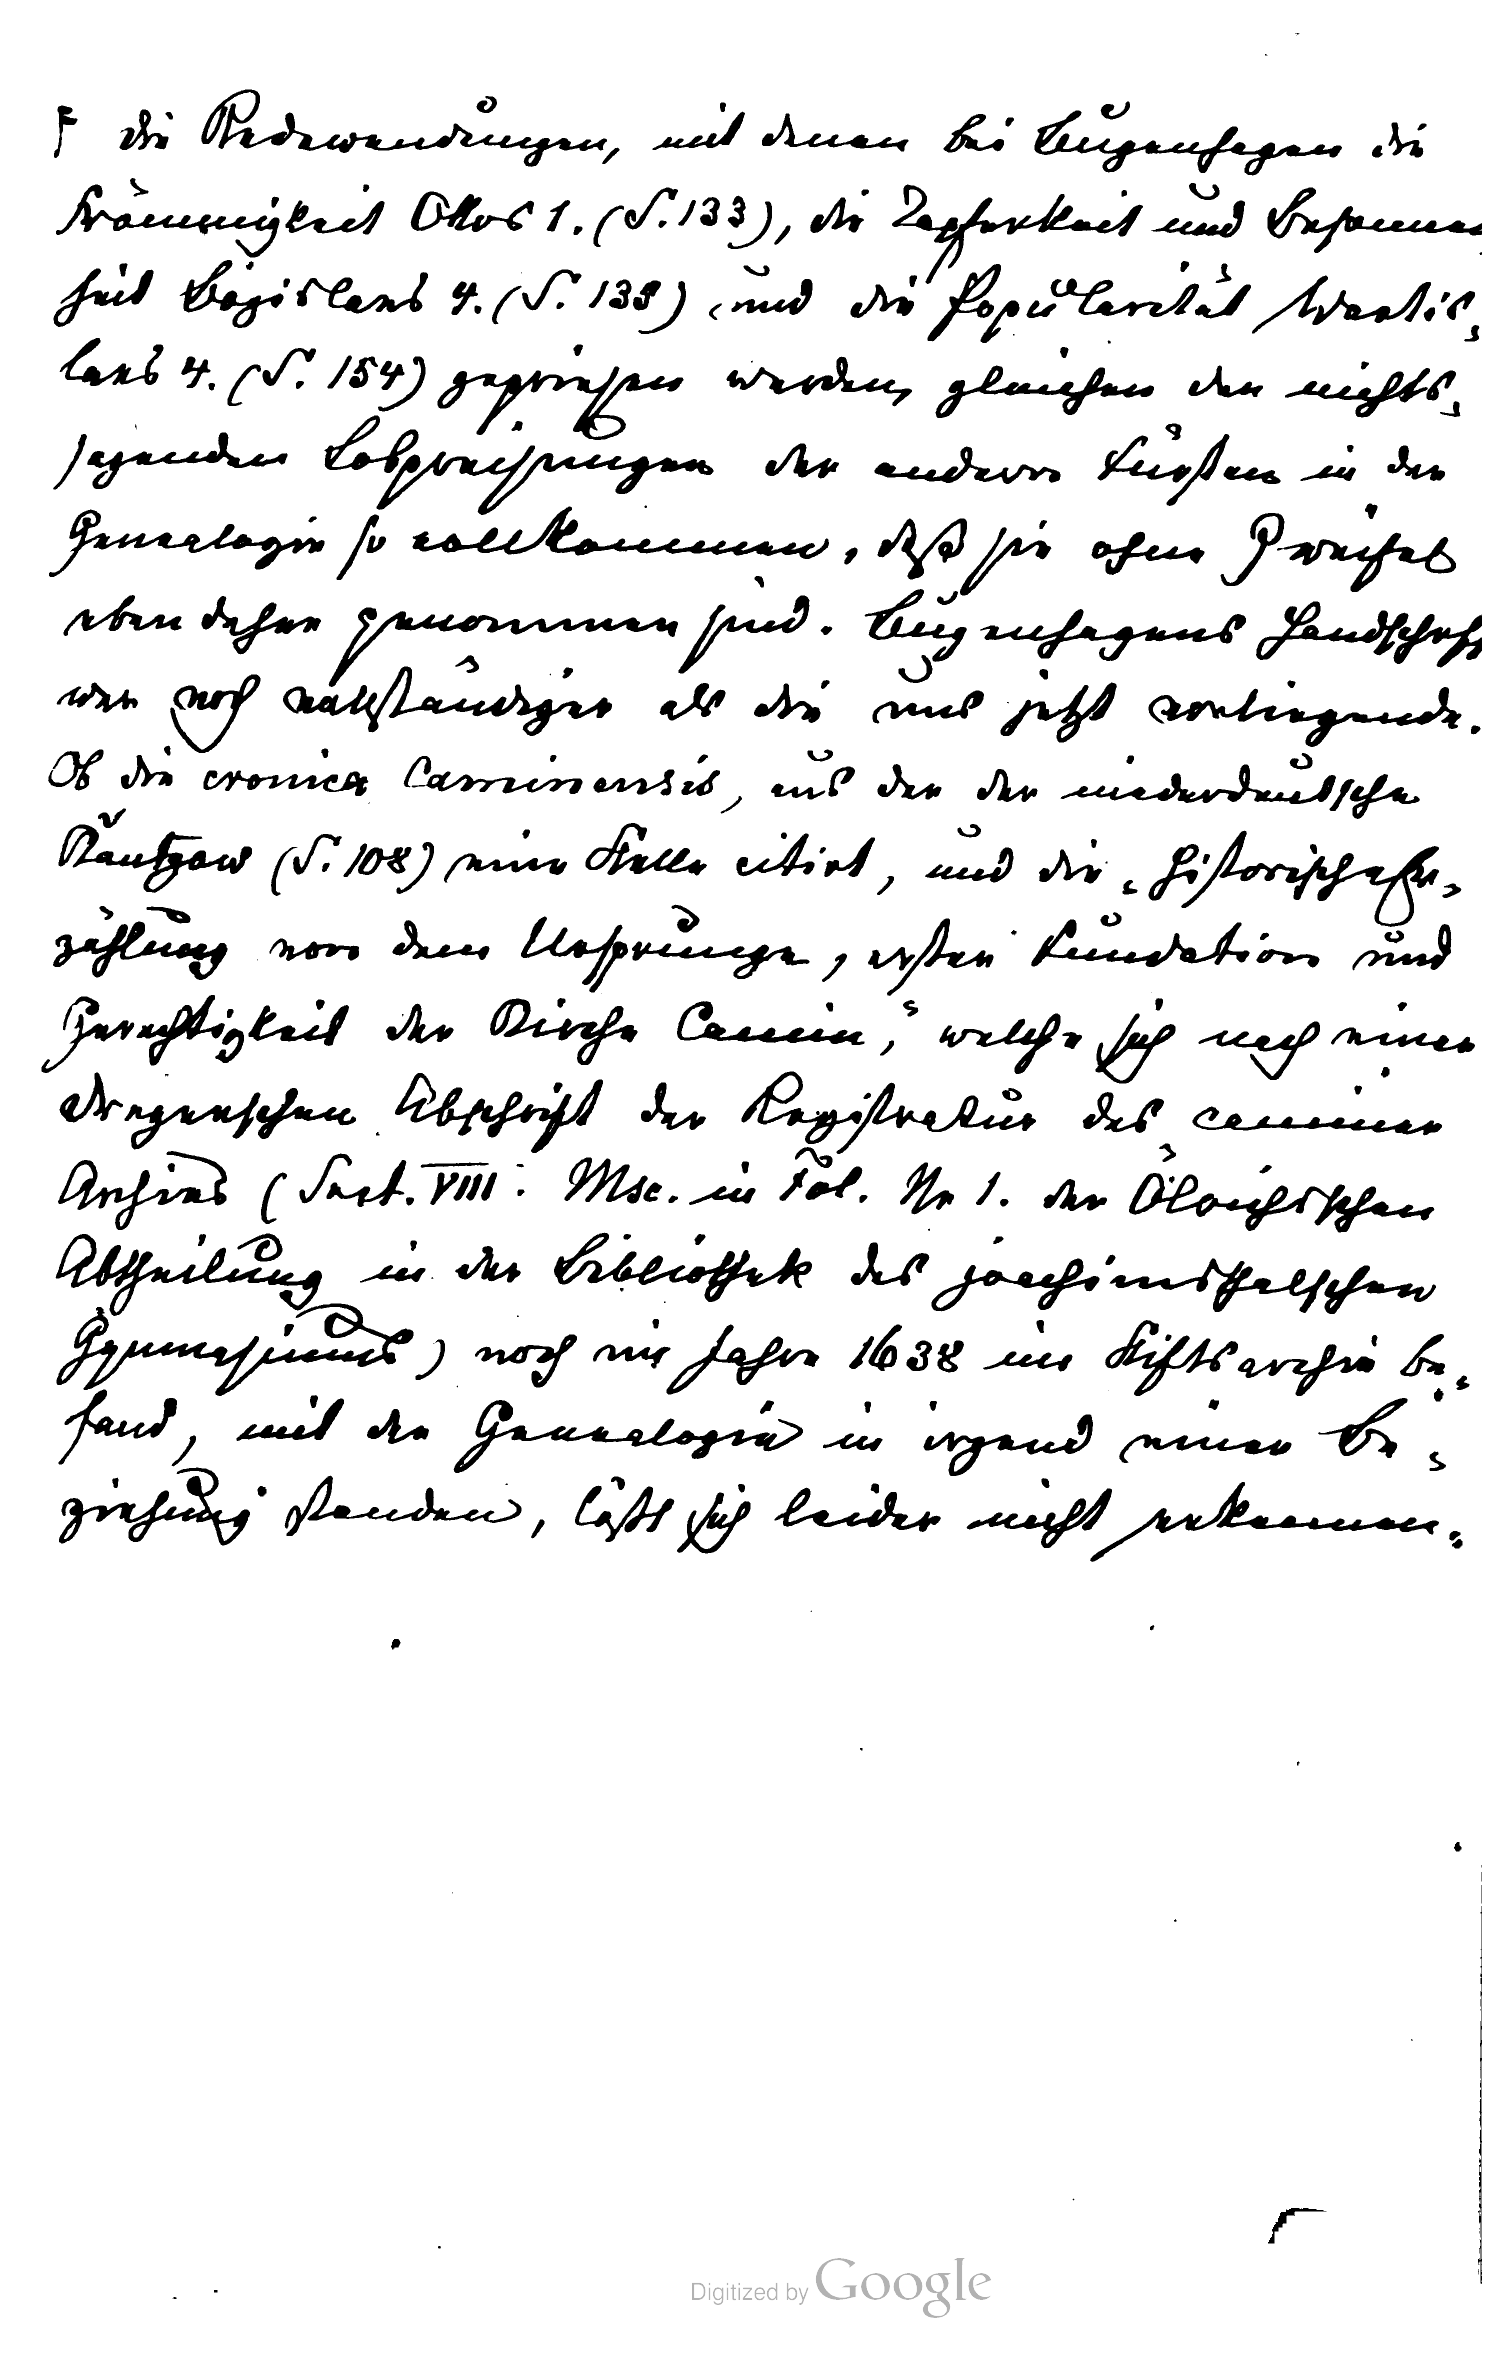 F die Redewendungen, mit denen bei Bugenhagen die
Frömmigkeit Ottos 1. (S. 133), die Tapferkeit und Besonnen
heit Bogislavs 4. (S. 138), und die Popularität Wartis-
lavs 4. (S. 154) gepriesen werden, gleichen den nichts-
sagenden Lobpreisungen der andern Fürsten in der
Genealogie so vollkommen, daß sie ohne Zweifel
eben daher genommen sind. Bugenhagens Handschrift
war noch vollständiger als die uns jetzt vorliegende.
Ob die cronica Caminensis, aus der der niederdeutsche
Kantzow (S. 108) eine Stelle citirt, und die „historische Er-
zählung von dem Ursprunge, erster Fundation und
Gerechtigkeit der Kirche Camin," welche sich nach einer
dregerschen Abschrift der Registratur des camminer
Archivs (Sect. VIII. Msc. in Fol. Nr 1. der Ölrichsschen
Abtheilung in der Bibliothek des joachimsthalschen
Gymnasiums) noch im Jahre 1638 im Stiftsarchiv be-
fand, mit der Genealogie in irgend einer Be-
ziehung standen, läßt sich leider nicht erkennen.
Digitized by Google